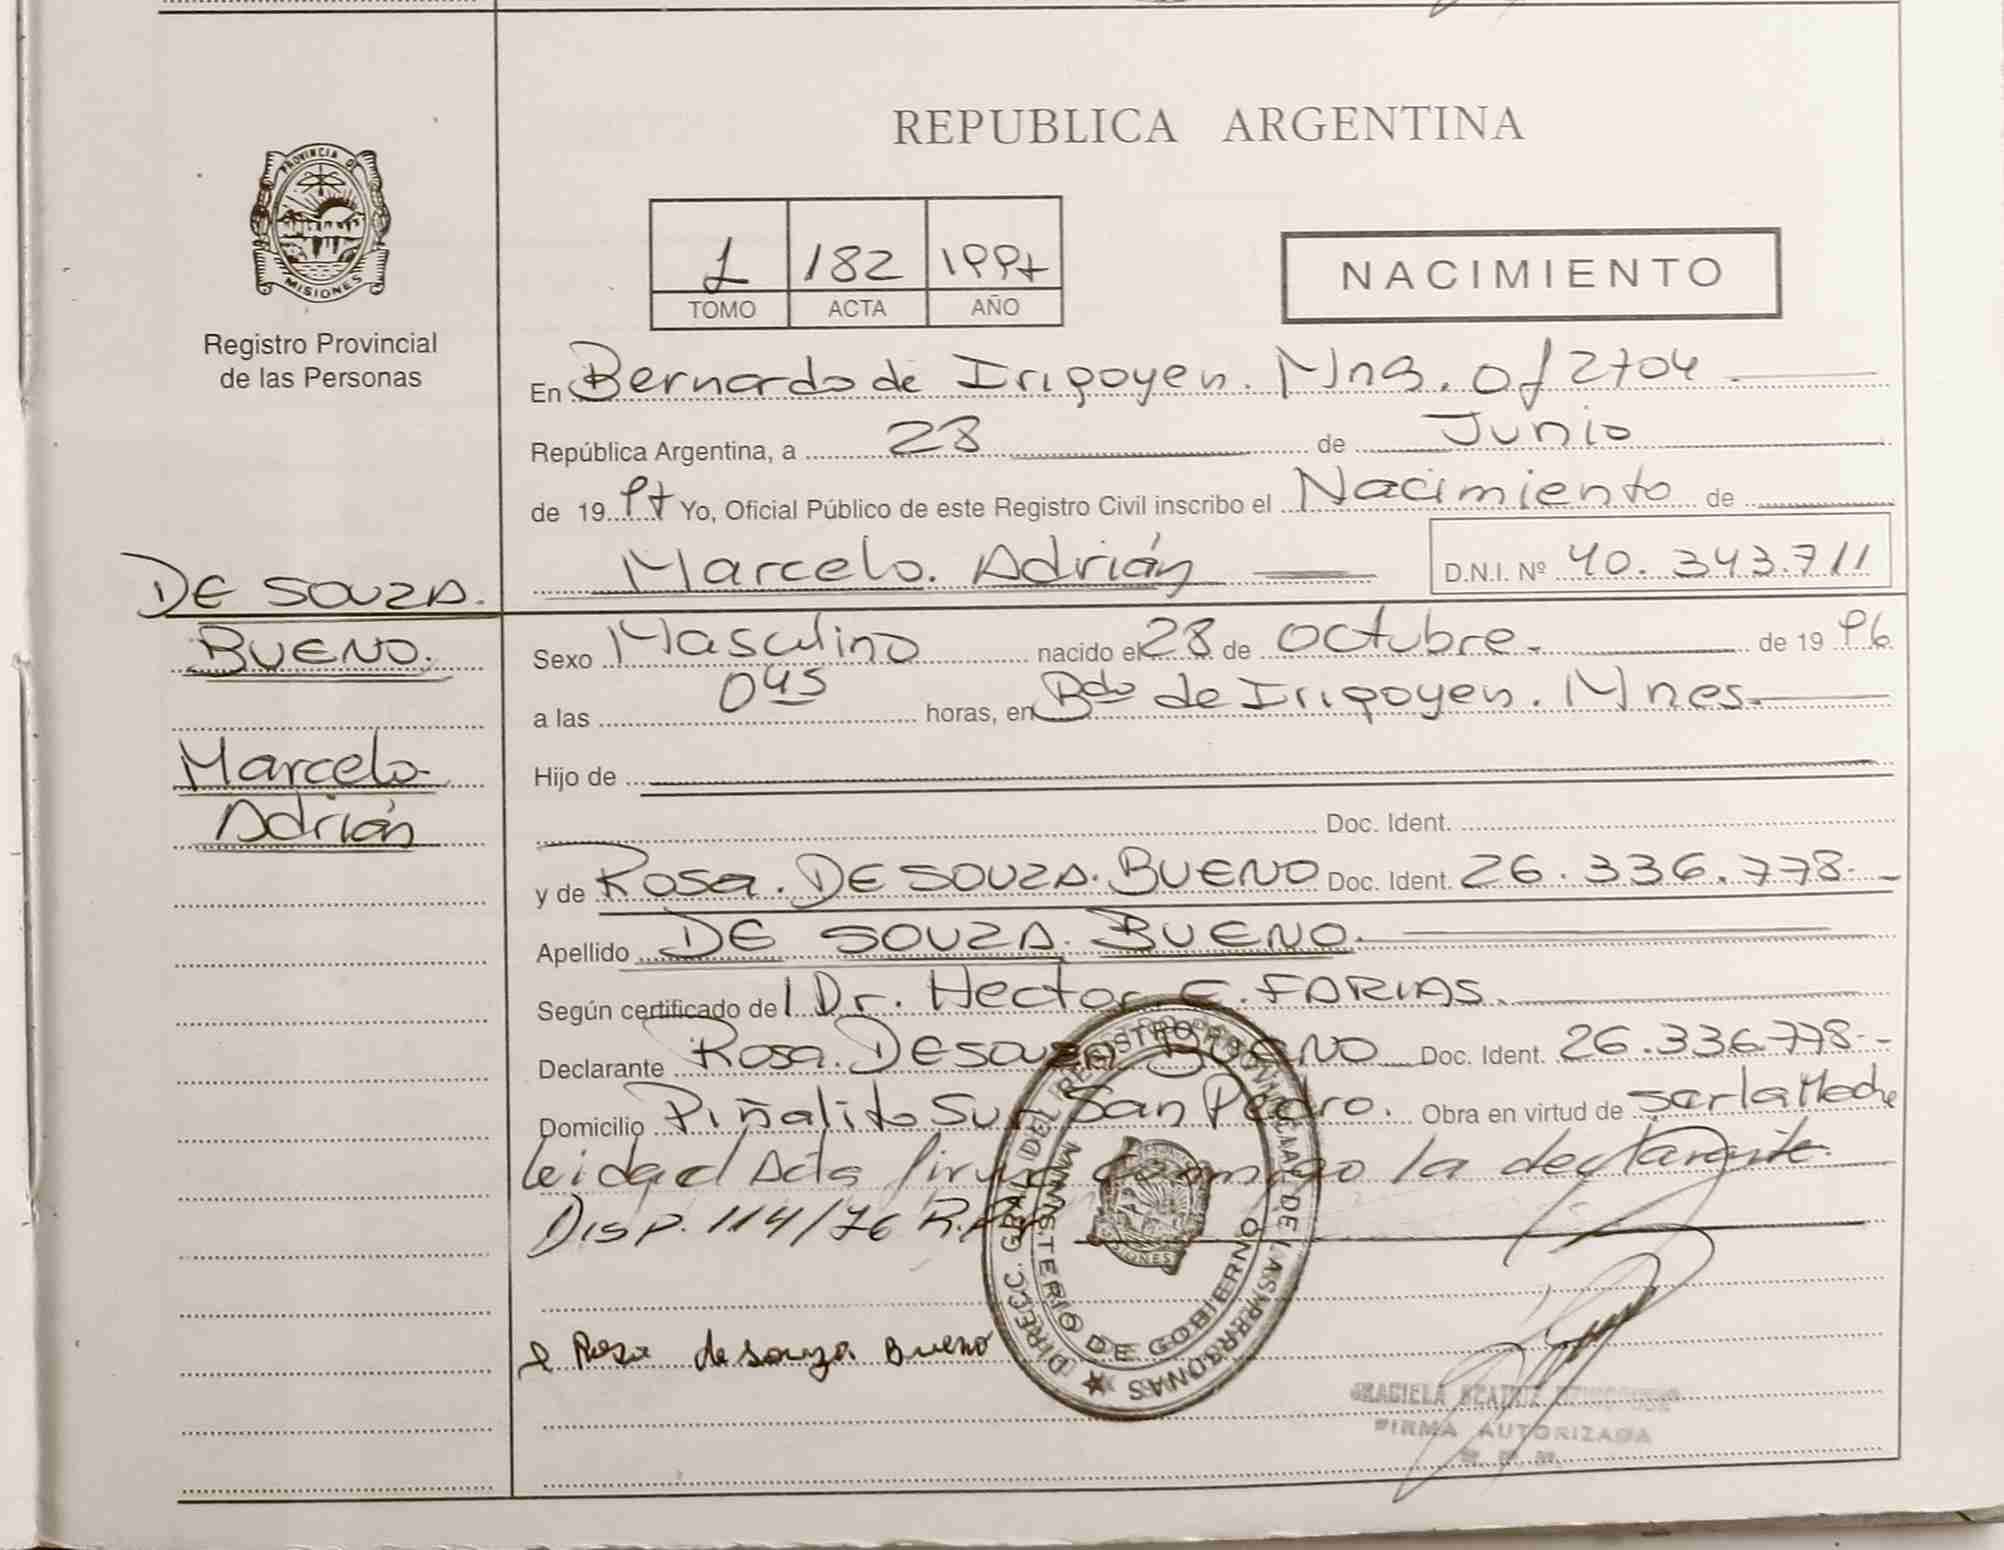 REPUBLICA ARGENTINA
PROVINCIA DE
MISIONES
Registro Provincial
de las Personas
1 182 1997
TOMO ACTA AÑO
NACIMIENTO
En Bernardo de Irigoyen. Mns. of 2704
República Argentina, a 28 de Junio
de 1997 Yo, Oficial Público de este Registro Civil inscribo el Nacimiento de
Marcelo. Adrián D.N.I. Nº 40.343.711
DE SOUZA.
BUENO.
Marcelo
Adrián
Sexo Masculino nacido el 28 de octubre. de 1996
a las 045 horas, en Bdo de Irigoyen. Mnes.
Hijo de
Doc. Ident.
y de Rosa. DE SOUZA. BUENO Doc. Ident. 26.336.778.
Apellido DE SOUZA. BUENO.
Según certificado de Dr. Hector. E. FARIAS.
Declarante Rosa. DE SOUZA BUENO Doc. Ident. 26.336.778.
Domicilio Piñalito Sur San Pedro. Obra en virtud de ser la Madre
leida el Acta firma conmigo la declarante.
Disp. 114/76 R.P.
DIRECC. GRAL DEL REGISTRO PROVINCIAL DE LAS PERSONAS
MINISTERIO DE GOBIERNO
MISIONES
Rosa de souza Bueno
GRACIELA BEATRIZ
FIRMA AUTORIZADA